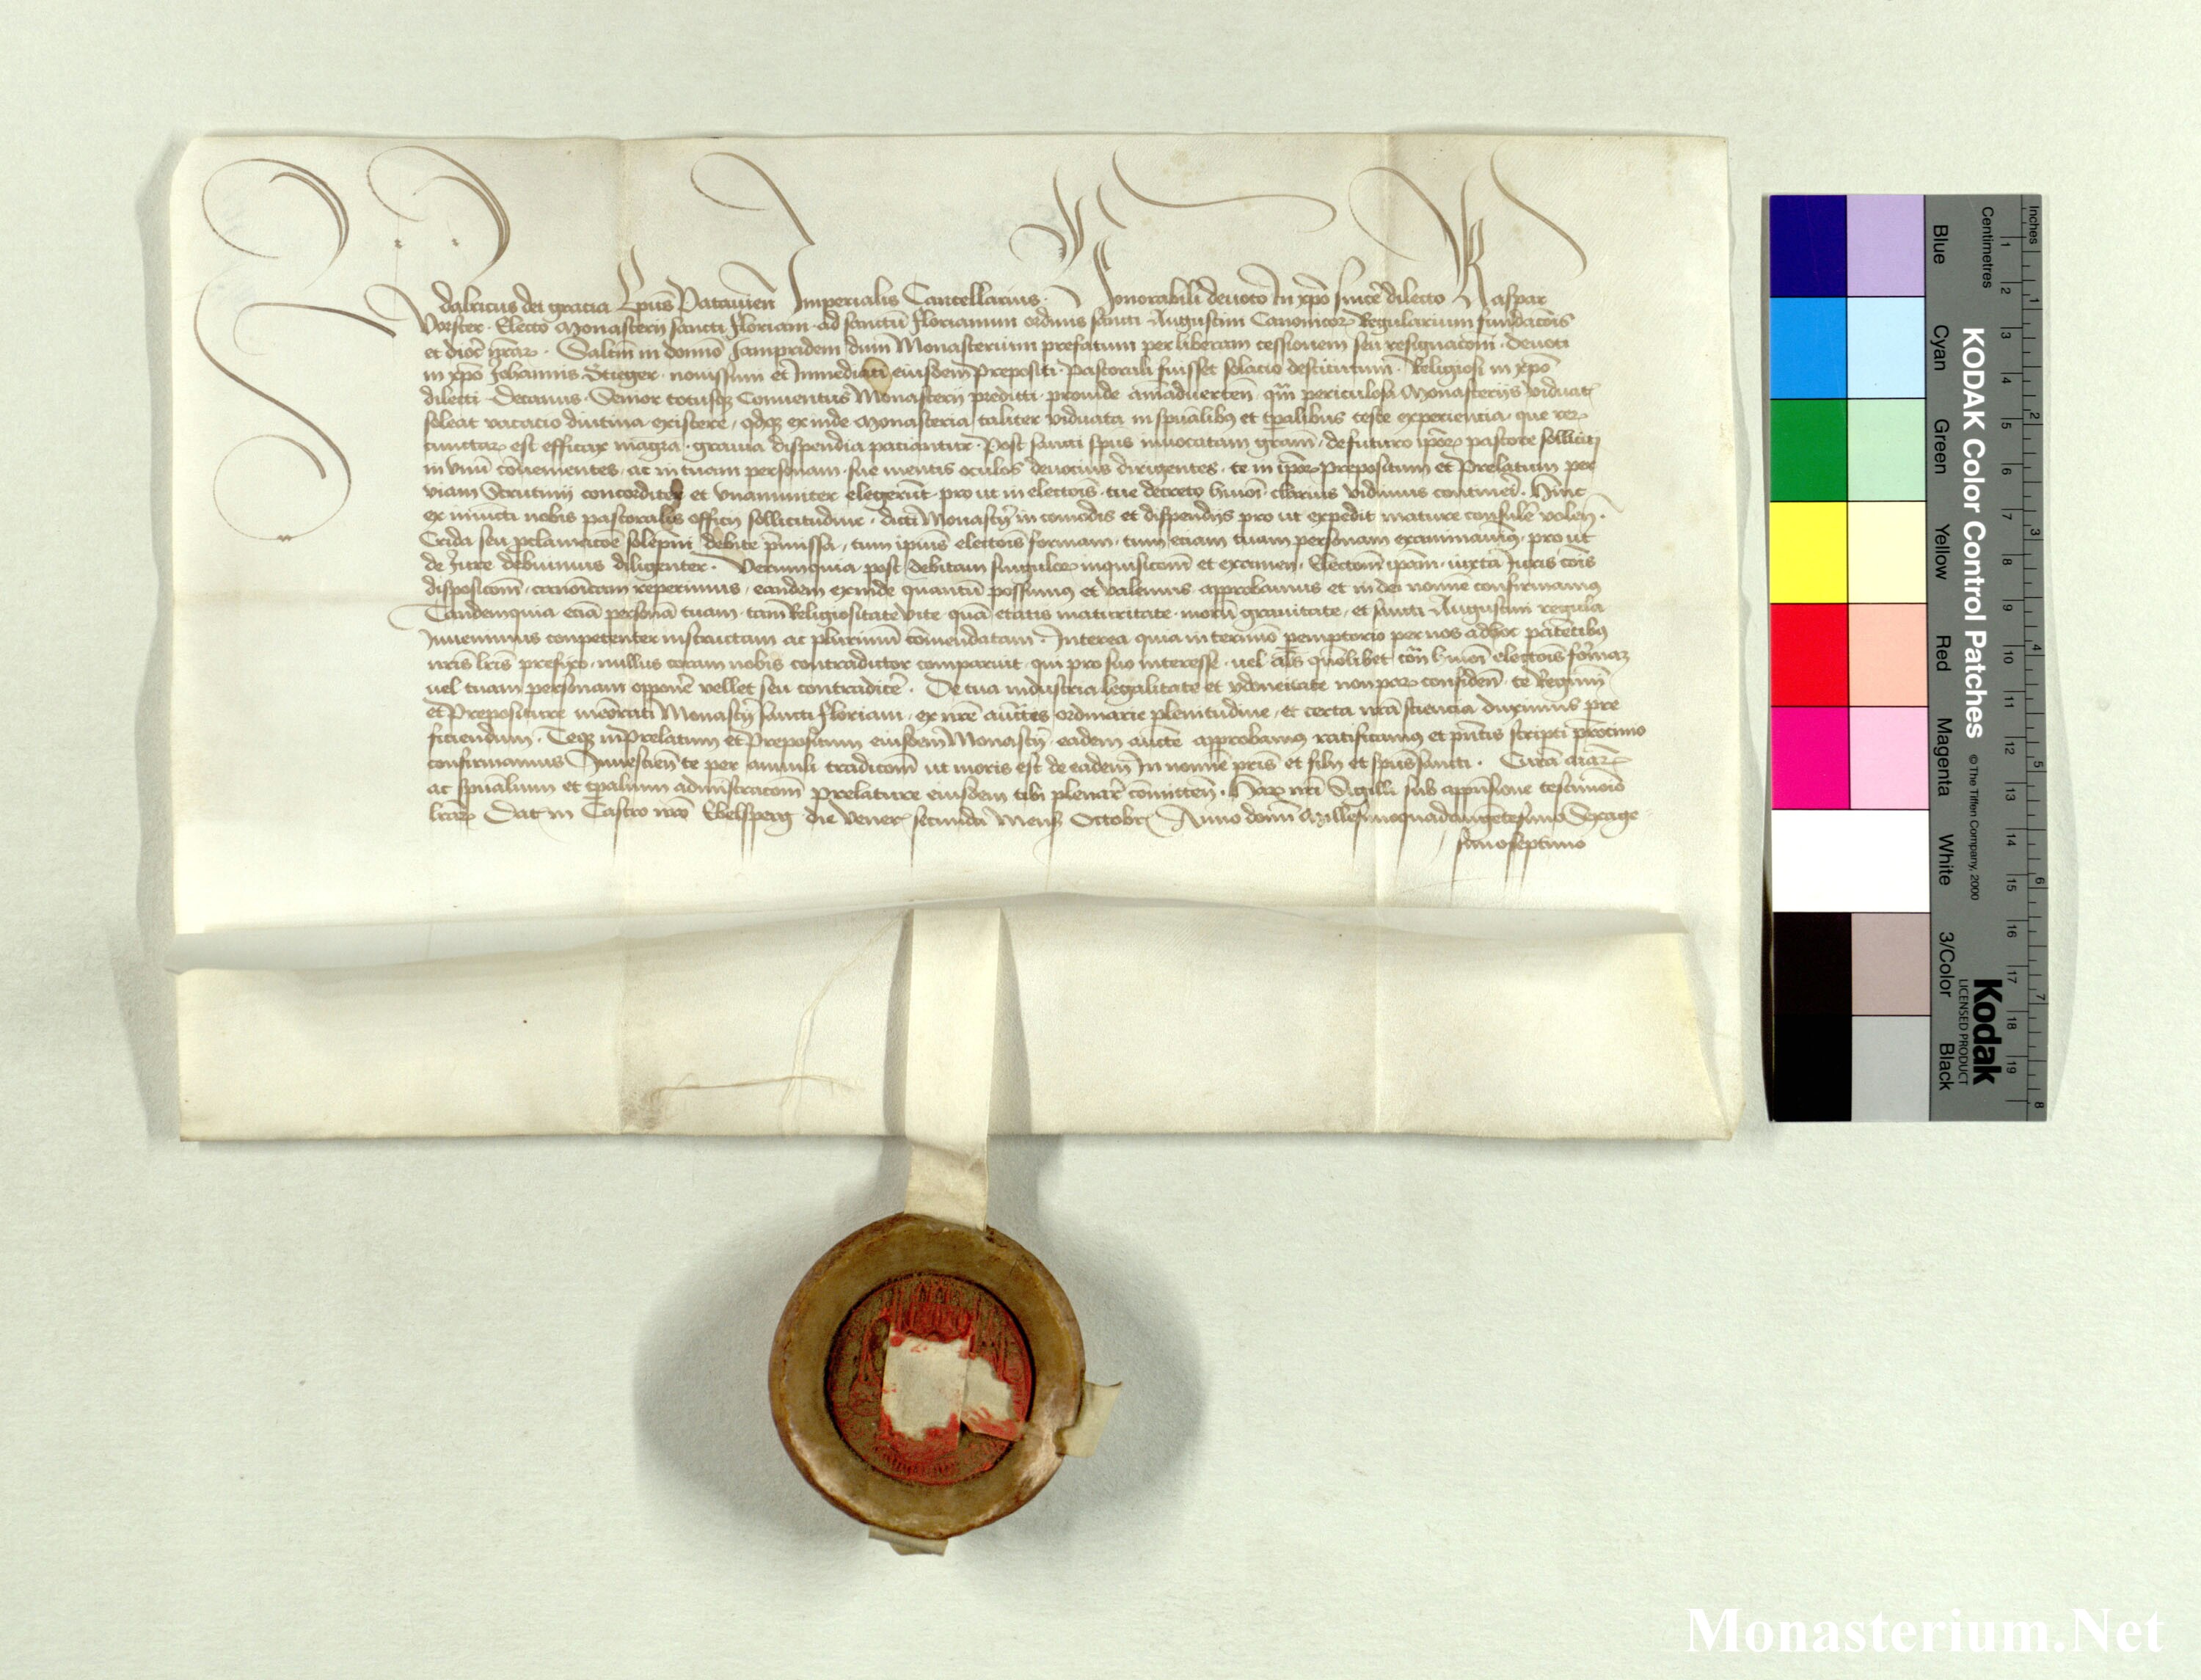 Udalricus dei gracia Ep̄us Patauien̄ Imperialis Cancellarius. Honorabili deuoto In xp̄o sincē dilecto Kaspar
Vorster. Electo Monasterij sancti Floriani ad sanctū Florianum ordinis sancti Augustini Canonicoꝝ Regularium fundacōis
et dioc̄ nr̄aꝝ. Salutē in domīo Jampridem dum Monasterium prefatum per liberam cessionem seu resignacōnē. deuoti
in xp̄o Johannis Stieger. nouissimi et Inmediati eiusdem Prepositi. Pastorali fuisset solacio destitutum. Religiosi in xp̄o
dilecti Decanus. Senior totusqꝫ Conuentus Monasterij predicti. prouide am̄aduerten̄ qm̄ periculosa Monasterijs viduat̄
soleat vacacio diutina existere, qdqꝫ exinde Monasteria taliter viduata in sp̄ualibꝫ et tp̄alibus teste experiencia, que reꝝ
cunctaꝝ est efficax magr̄a. grauia dispendia paciantur. Post sancti sp̄us inuocatam grām, de futuro ip̄oꝝ pastore solliciti
in vnū cōuenientes, ac in tuam personam sue mentis oculos deuocius dirigentes. te in ip̄oꝝ prepositum et Prelatum per
viam Scrutinij concorditer et vnanimiter elegerūt. pro ut in electōis tue decreto hm̄oi. clarius vidimus contineri. Hinc
ex iniuncti nobis pastoralis officij sollicitudine. dicti Monastr̄ij in comodis et dispendijs pro ut expedit mature consulē volen̄.
Crida seu proclamacōe solēpni debite p̄missa, tum ipius electōis formam. tum eciam tuam personam examinauimꝰ. pro ut
de Jure debuimus diligenter. Verum quia post debitam singuloꝝ inquisicōnē et examen. Electōnē ipam. iuxta Juris cōis
disposicōnē. canoīcam reperimus, eandem exinde quantū possumꝰ et valemus approbamus et in dei nomīe confirmamꝰ
Tandemquia eciā personā tuam. tam Religiositate vite. quā etatis maturitate. morū grauitate, et sancti Augustini regula
Inuenimus conpetenter instructam ac plurimū comendatam. Interea quia in termīo pemptorio per nos ad hoc patētibꝫ
nr̄is lr̄is prefixo. nullus coram nobis contradictor comparuit. qui pro suo interesse. uel al̄s quōlibet cōtra hm̄oi electōis formaꝫ
uel tuam personam opponē vellet seu contradicē. De tua industria legalitate et ydoneitate non paꝝ confiden̄. te Regimī
et Prepositure memorati Monastr̄ij sancti Floriani, ex nr̄e auctt̄is ordinarie plenitudine, et certa nr̄a sciencia duximus pre
ficiendum. Teqꝫ in Prelatum et Prepositum eiusdem Monastr̄ij. eadem auctt̄e approbamꝰ ratificamꝰ et pn̄tis scripti p̄rocinio
confirmamus Inuestien̄ te per annuli tradicōnē ut moris est de eadem In nomīe pr̄is et filij et sp̄us sancti. Curā aīaꝝ
ac sp̄ualium et tp̄alium administracōnē prelature eiusdem tibi plenar̄ comitten̄. Haꝝ nr̄i Sigilli sub appensione testimonio
lr̄aꝝ Dat̄ in Castro nr̄o Ebelsperg die vener̄ secunda Mens̄ Octobr̄ Anno domī Millesimoquadringētesimo Sexage
simoseptimo
KODAK Color Control Patches © The Tiffen Company, 2000
Kodak
LICENSED PRODUCT
Blue Cyan Green Yellow Red Magenta White 3/Color Black
Centimetres 1 2 3 4 5 6 7 8 9 10 11 12 13 14 15 16 17 18 19
Inches 1 2 3 4 5 6 7 8
Monasterium.Net